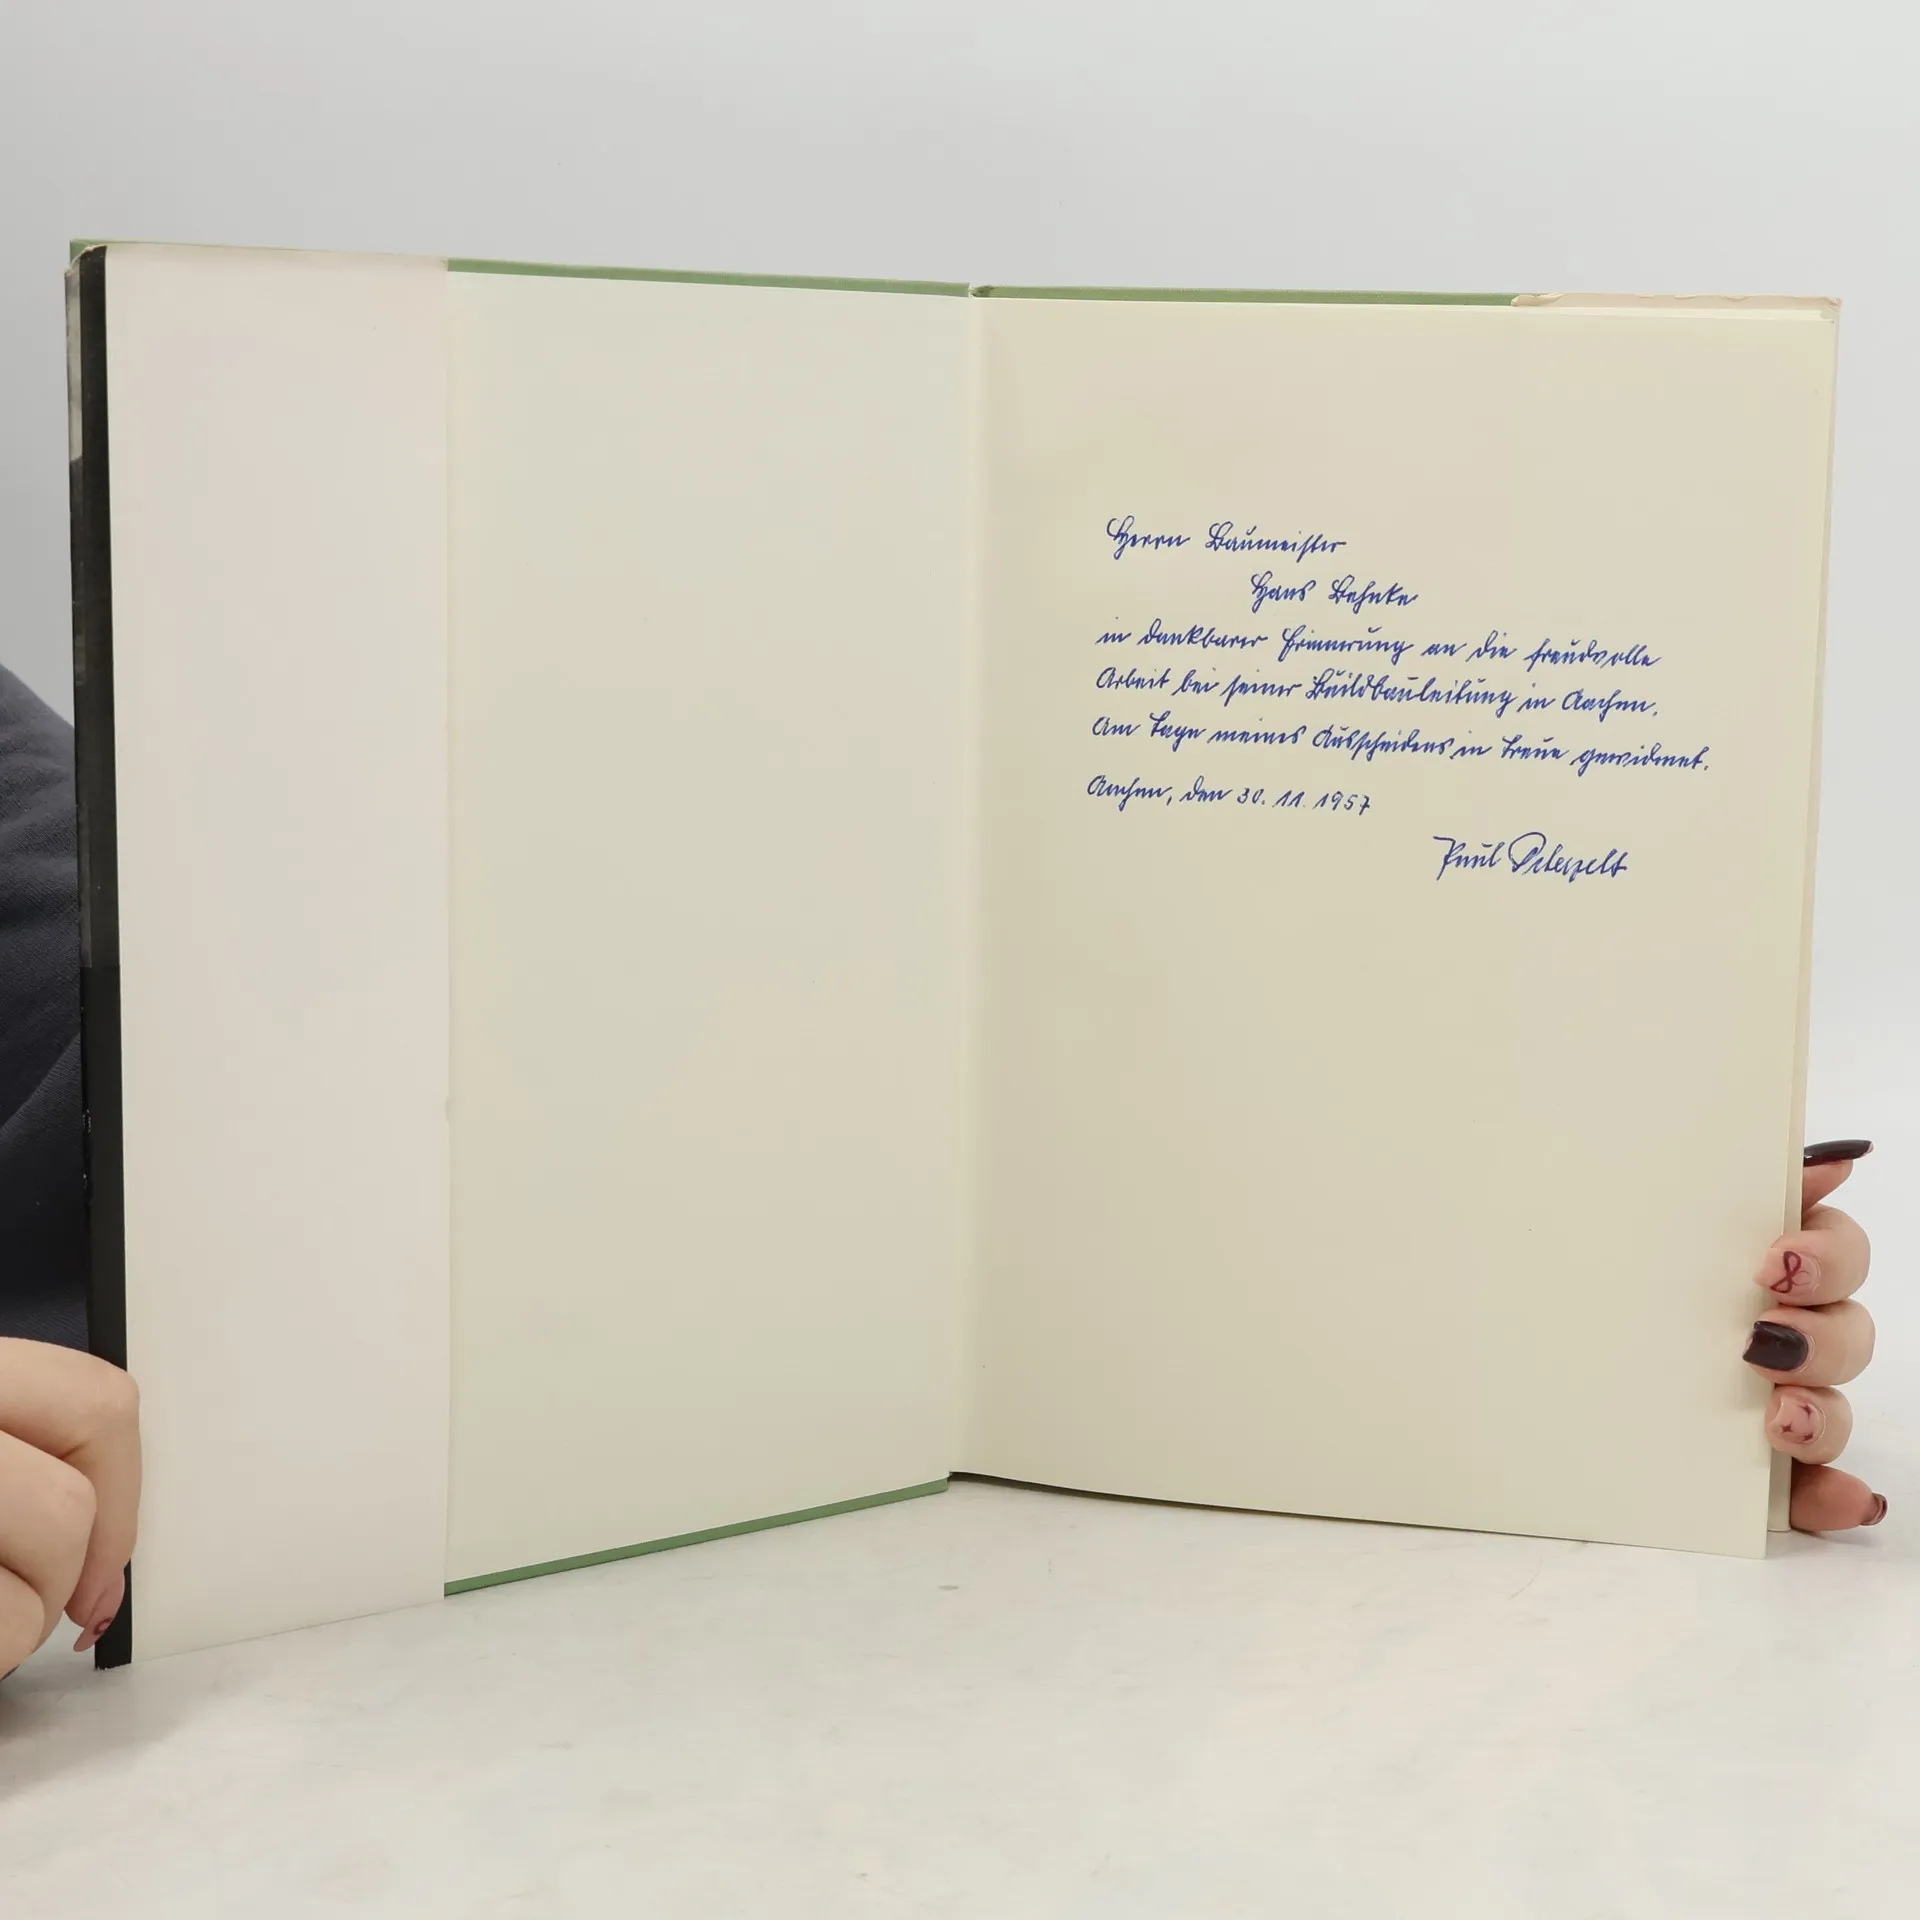 Herrn Baumeister
Hans Behnke
in dankbarer Erinnerung an die freudvolle
Arbeit bei seiner in Aachen.
Am Tage meines Ausscheidens in Treue gewidmet.
Aachen, den 30. 11. 1957
Paul